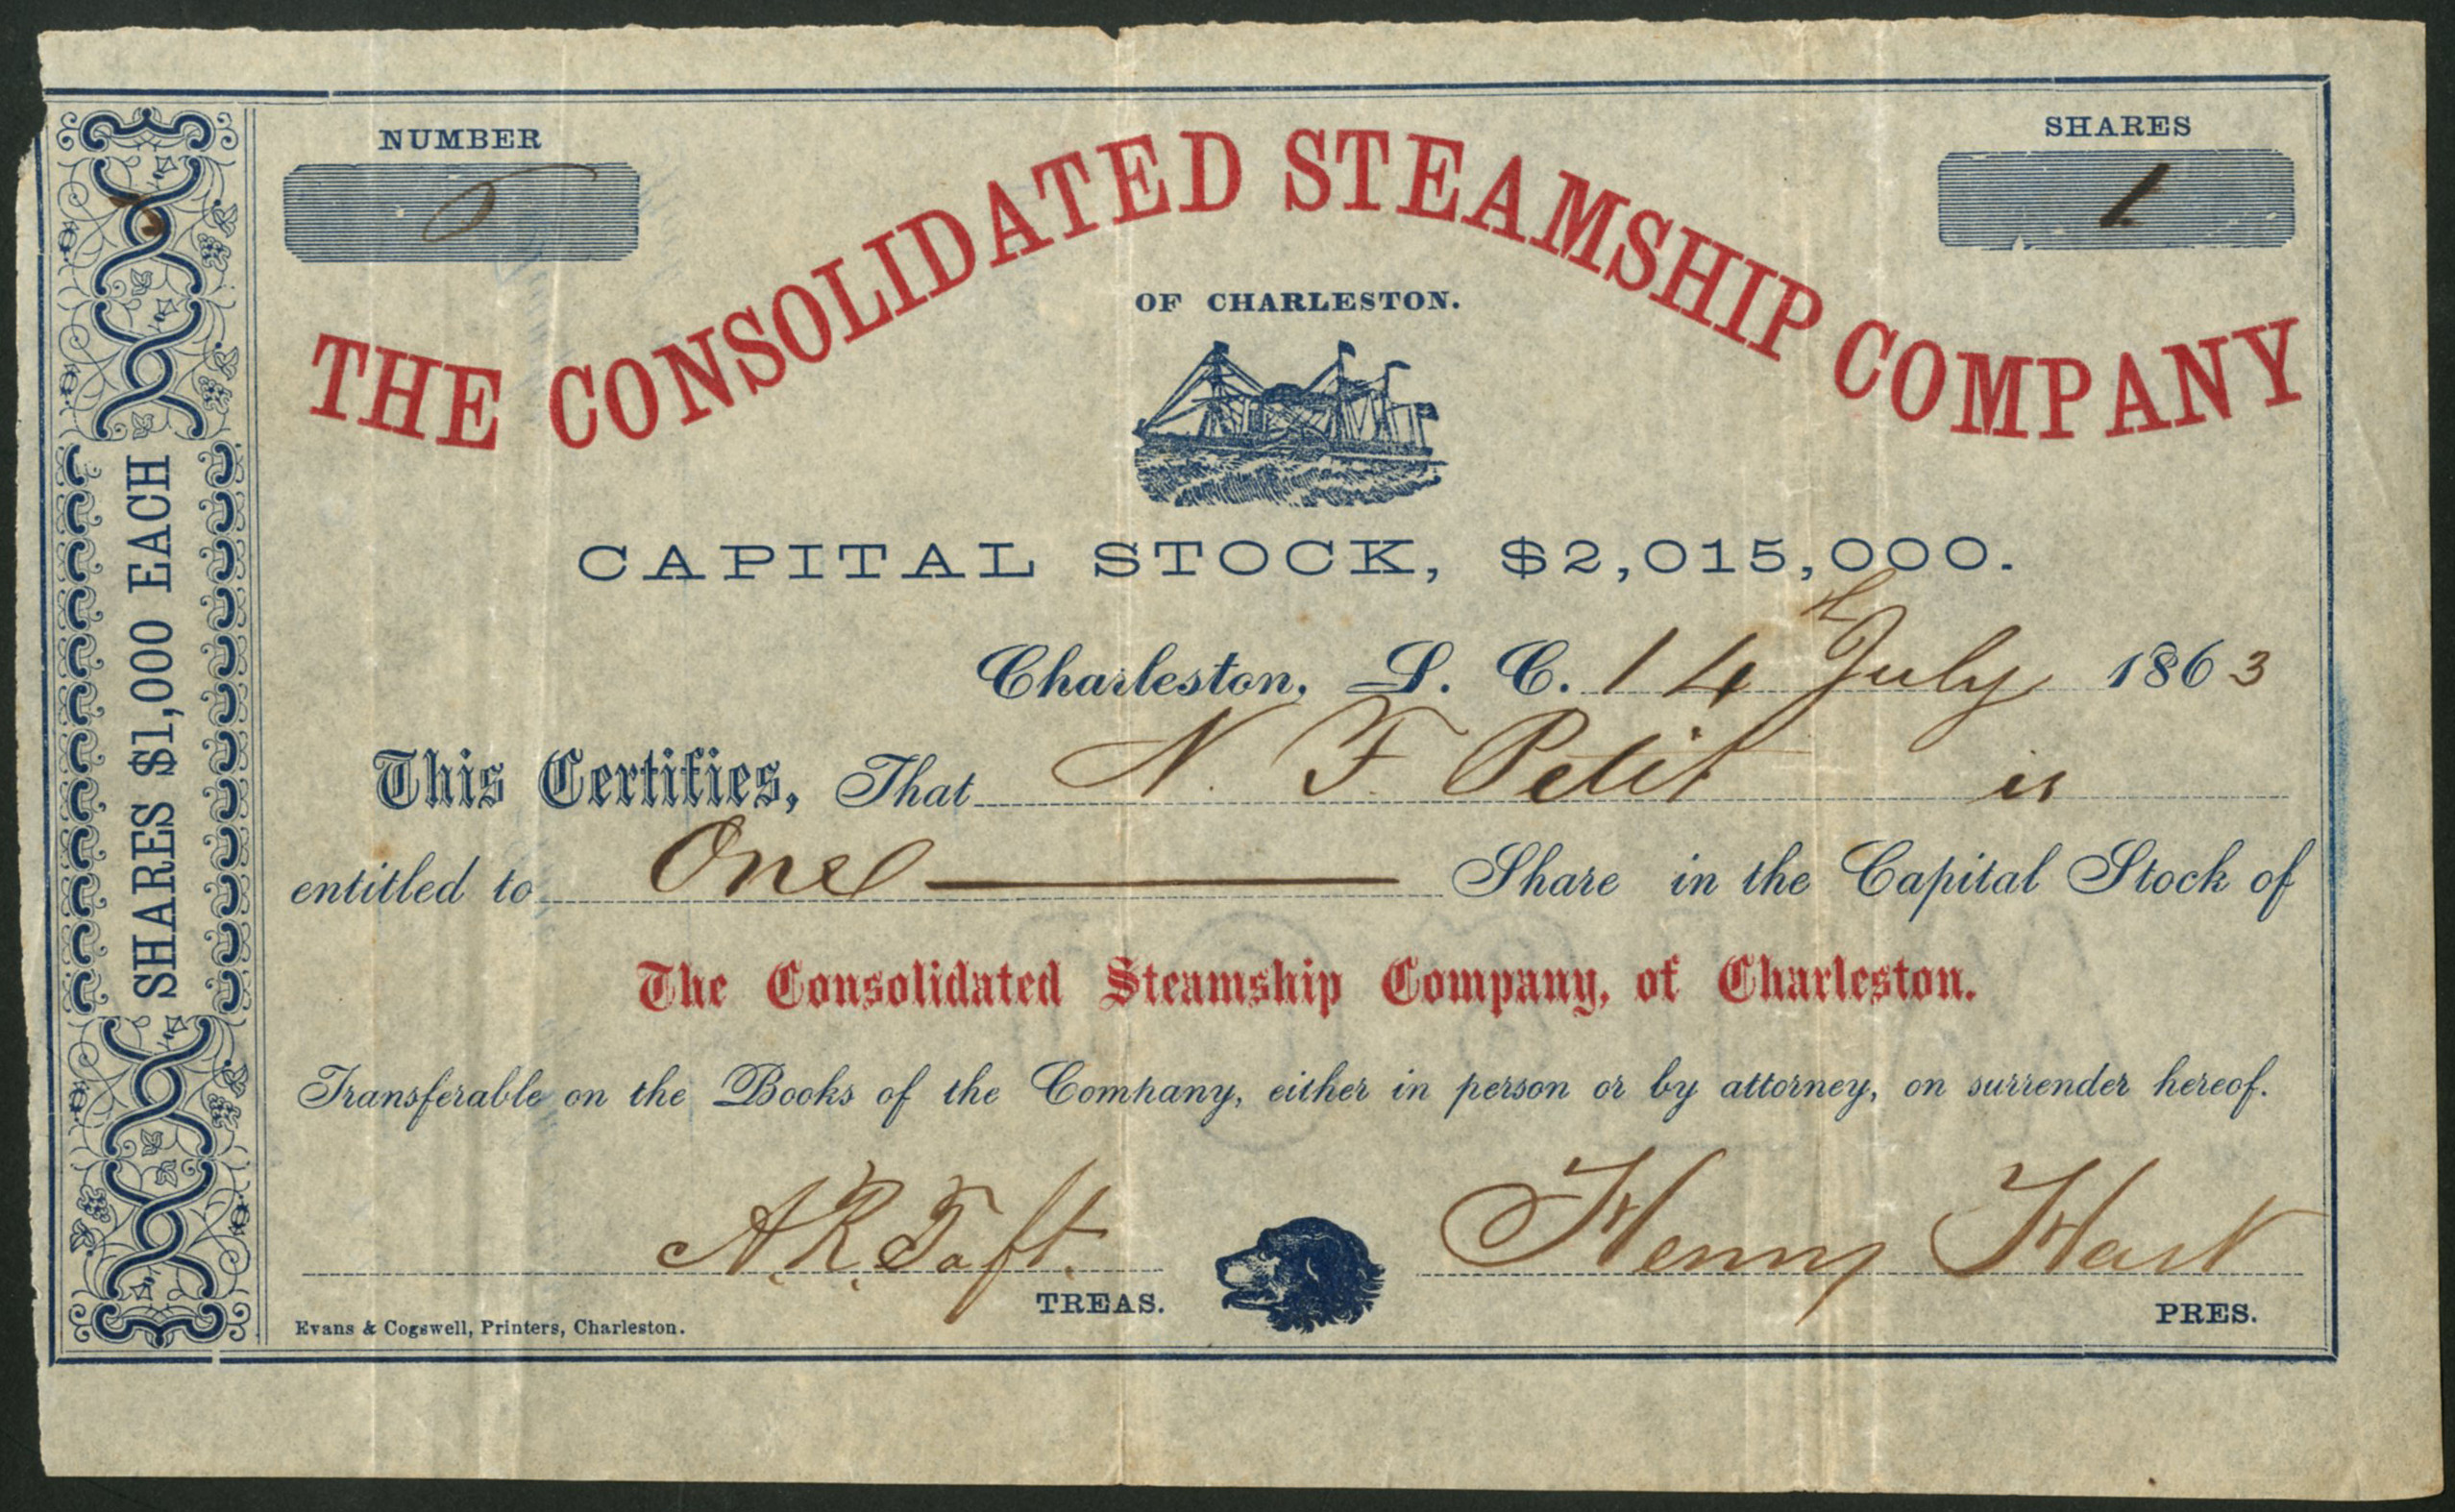 NUMBER
SHARES
1
THE CONSOLIDATED STEAMSHIP COMPANY
OF CHARLESTON.
CAPITAL STOCK, $2,015,000.
Charleston, S. C. 14th July 1863
This Certifies, That N. F. Petit is
entitled to One Share in the Capital Stock of
The Consolidated Steamship Company, of Charleston.
Transferable on the Books of the Company, either in person or by attorney, on surrender hereof.
A. R. Taft.
TREAS.
Henry Hart
PRES.
Evans & Cogswell, Printers, Charleston.
SHARES $1,000 EACH